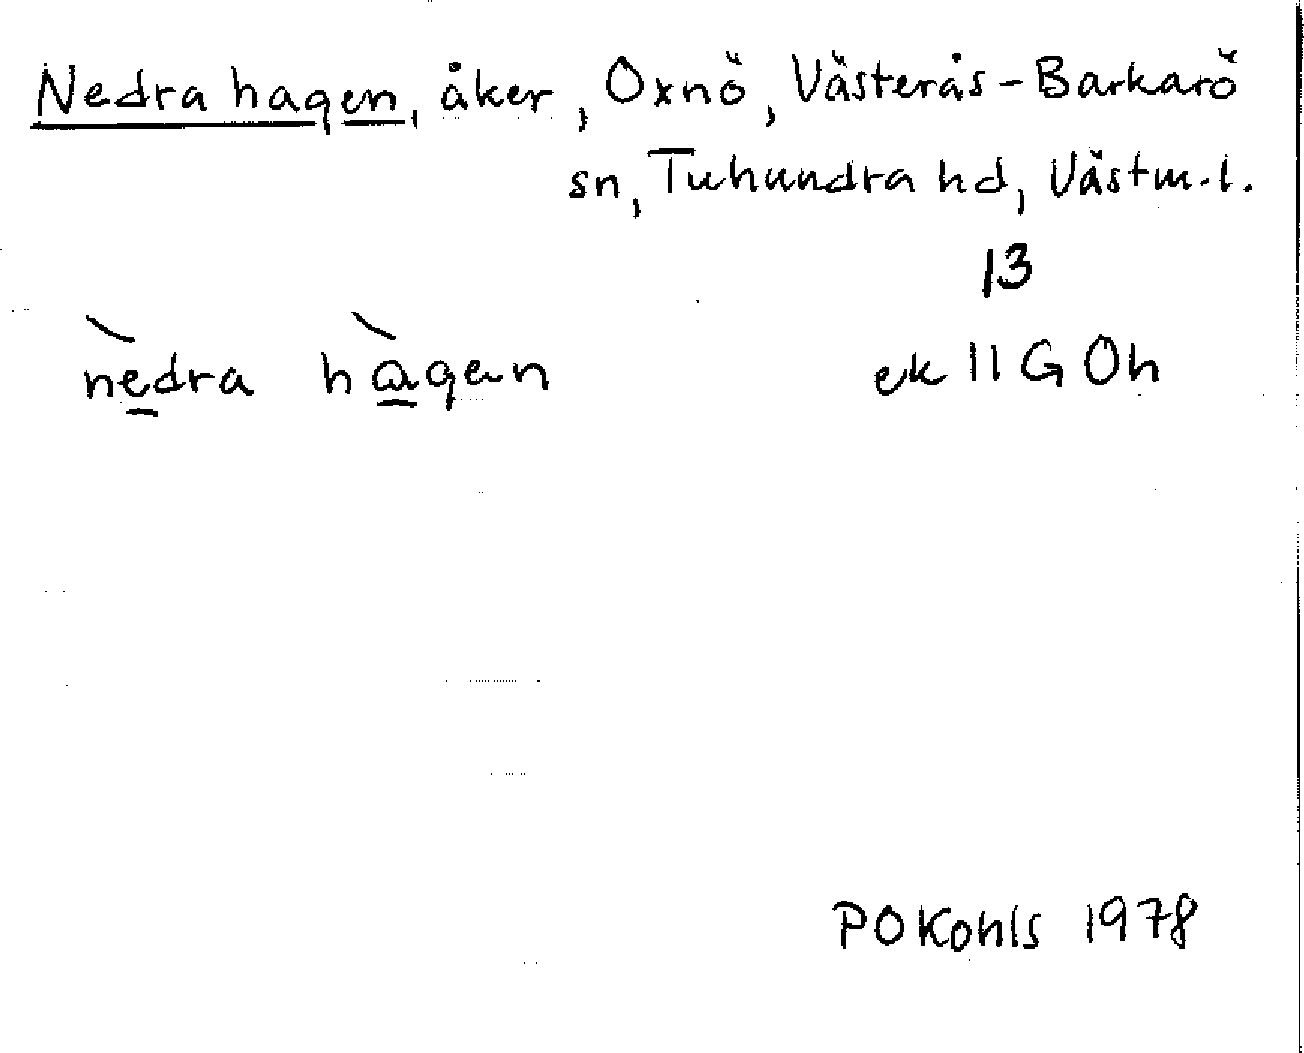 Nedra hagen, åker, Oxnö, Västerås-Barkarö
sn, Tuhundra hd, Västm.l.
13
nèdra hàgen
ek 11G 0h
POKohls 1978